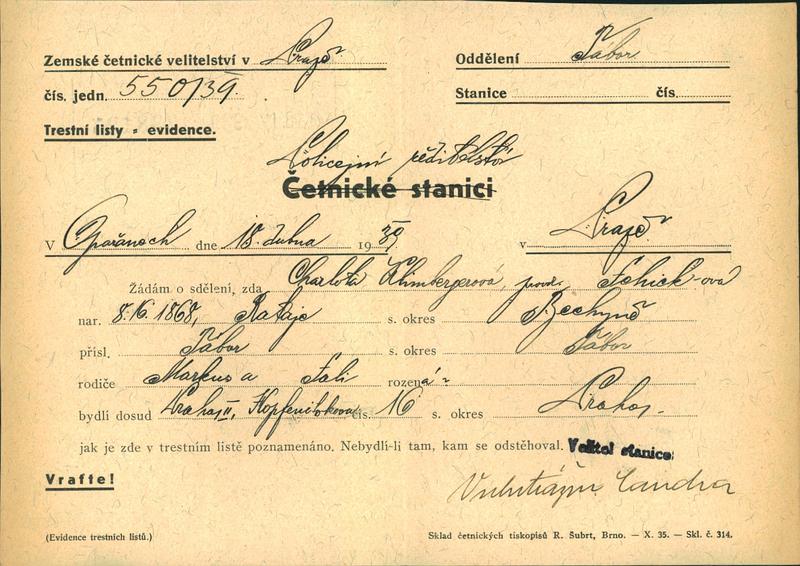 Zemské četnické velitelství v Praze Oddělení Tábor
čís. jedn. 550/39. Stanice čís.
Trestní listy - evidence.
Policejní ředitelství
Četnické stanici
V Opařanech dne 18. dubna 1939 v Praze
Žádám o sdělení, zda Charlota Klimbergerová,
nar. 8./6. 1868, Rataje s. okres Bechyně
přísl. Tábor s. okres Tábor
rodiče Markus a rozená
bydlí dosud Praha II, čís. 16 s. okres Praha
jak je zde v trestním listě poznamenáno. Nebydlí-li tam, kam se odstěhoval.
Velitel stanice:
Vraťte!
(Evidence trestních listů.) Sklad četnických tiskopisů R. Šubrt, Brno. — X. 35. — Skl. č. 314.